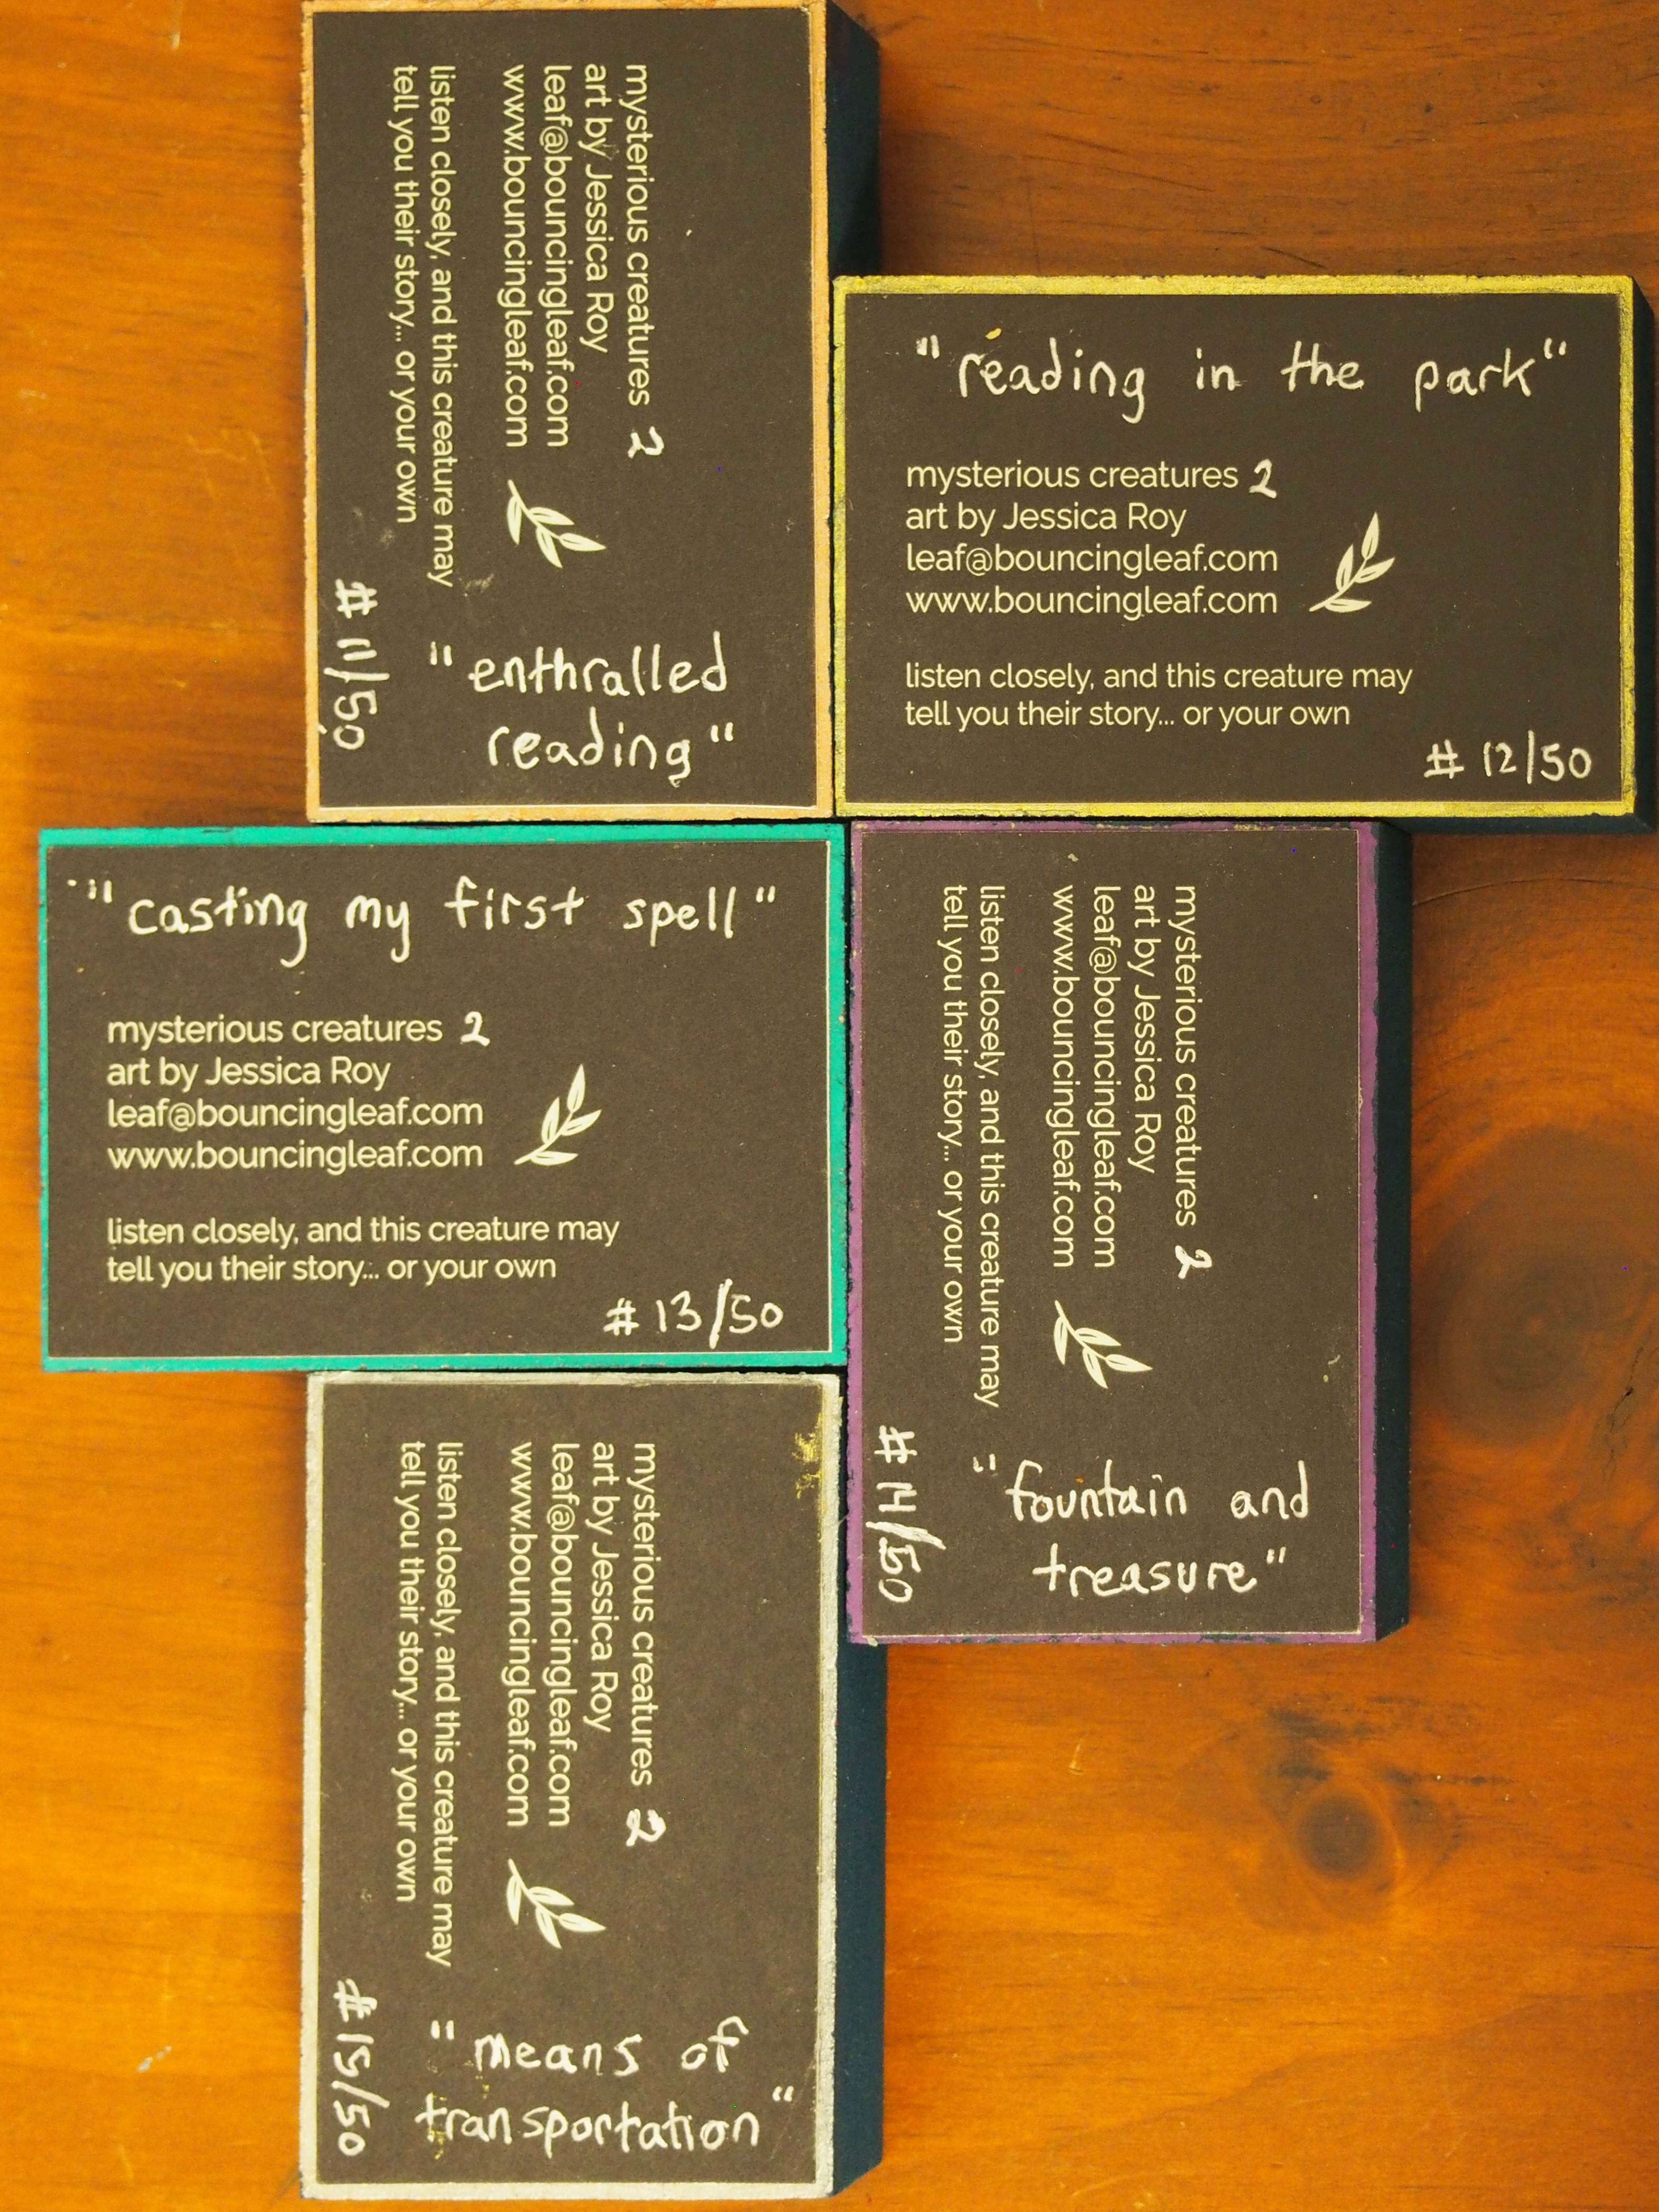 mysterious creatures 2
art by Jessica Roy
leaf@bouncingleaf.com
www.bouncingleaf.com
listen closely, and this creature may
tell you their story... or your own
#11/50
"enthralled
reading"
"reading in the park"
mysterious creatures 2
art by Jessica Roy
leaf@bouncingleaf.com
www.bouncingleaf.com
listen closely, and this creature may
tell you their story... or your own
#12/50
"casting my first spell"
mysterious creatures 2
art by Jessica Roy
leaf@bouncingleaf.com
www.bouncingleaf.com
listen closely, and this creature may
tell you their story... or your own
#13/50
mysterious creatures 2
art by Jessica Roy
leaf@bouncingleaf.com
www.bouncingleaf.com
listen closely, and this creature may
tell you their story... or your own
#14/50
"fountain and
treasure"
mysterious creatures 2
art by Jessica Roy
leaf@bouncingleaf.com
www.bouncingleaf.com
listen closely, and this creature may
tell you their story... or your own
#15/50
"means of
transportation"